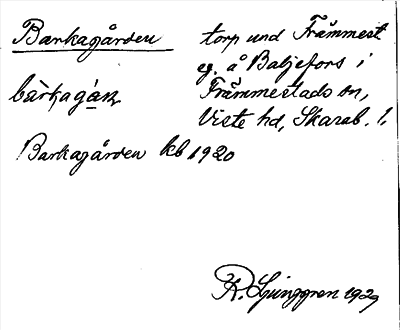 Barkagården
torp und Främmest
eg. å Baljefors i
Främmestads sn,
Viste hd, Skarab. l.
bàrkagáɳ
Barkagården kb 1920
R. Ljunggren 1929